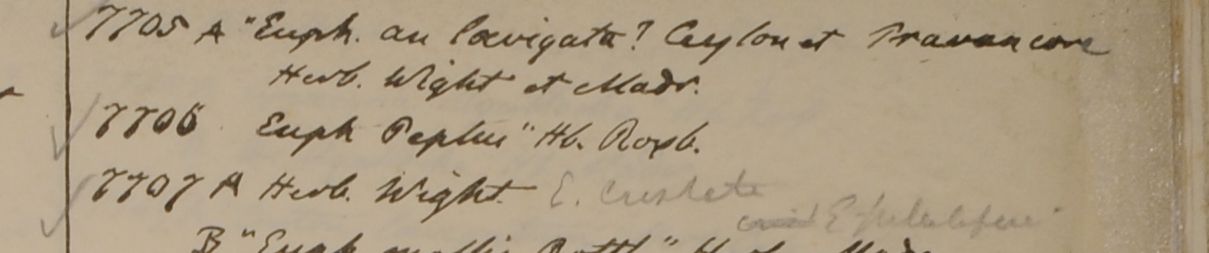 7705 A "Euph. an lævigata? Ceylon et Travancore
Herb. Wight et Madr.
7706 Euph Peplus" Hb. Roxb.
7707 A Herb. Wight E. cristata
E
B "Euph mollis Rottl" Herb. Madr